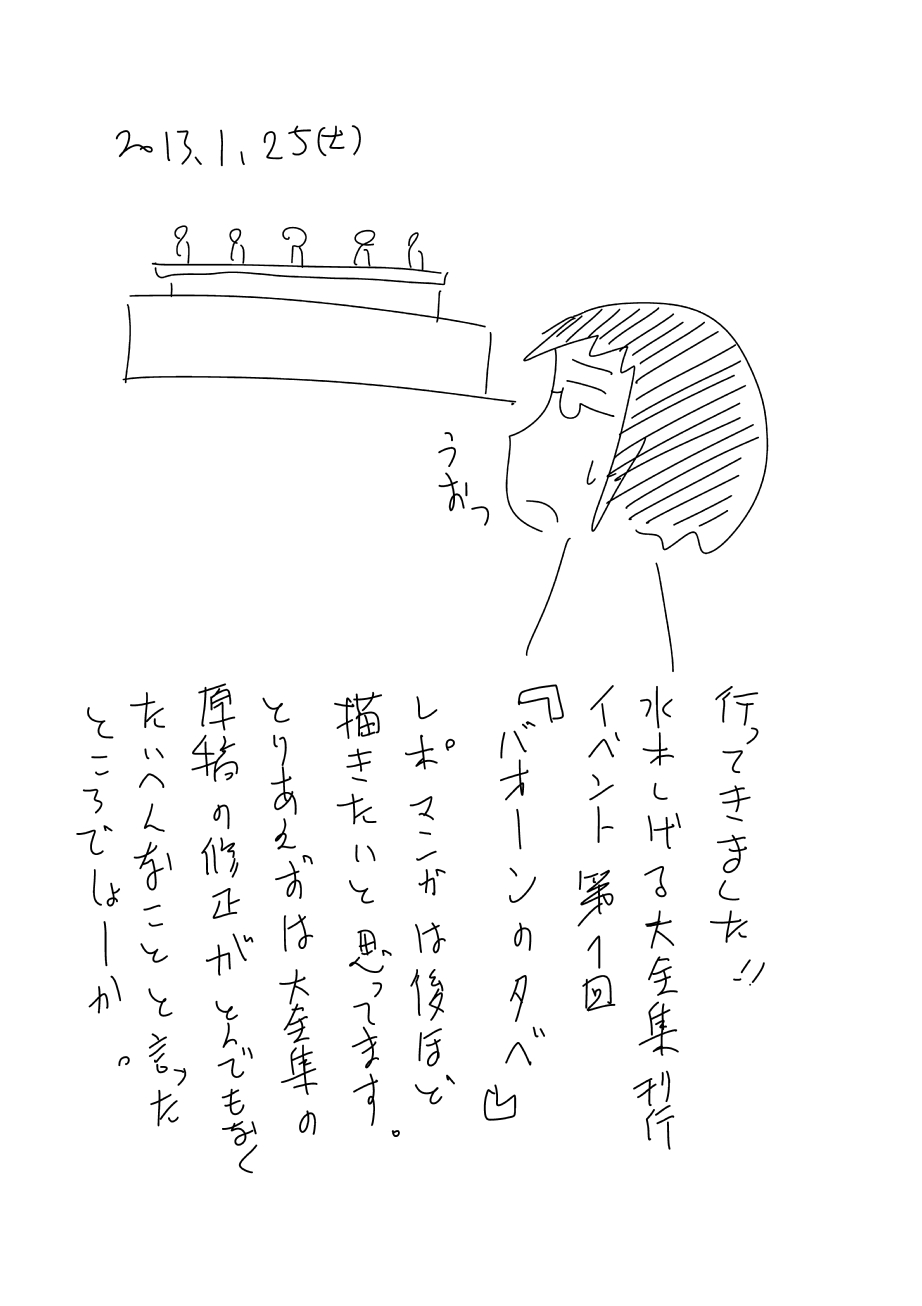 2013.1.25(土)
うおっ
行ってきました!!
水木しげる大全集刊行
イベント第1回
『バオーンの夕べ』
レポマンガは後ほど
描きたいと思ってます。
とりあえずは大全集の
原稿の修正がとんでもなく
たいへんなことと言った
ところでしょーか。